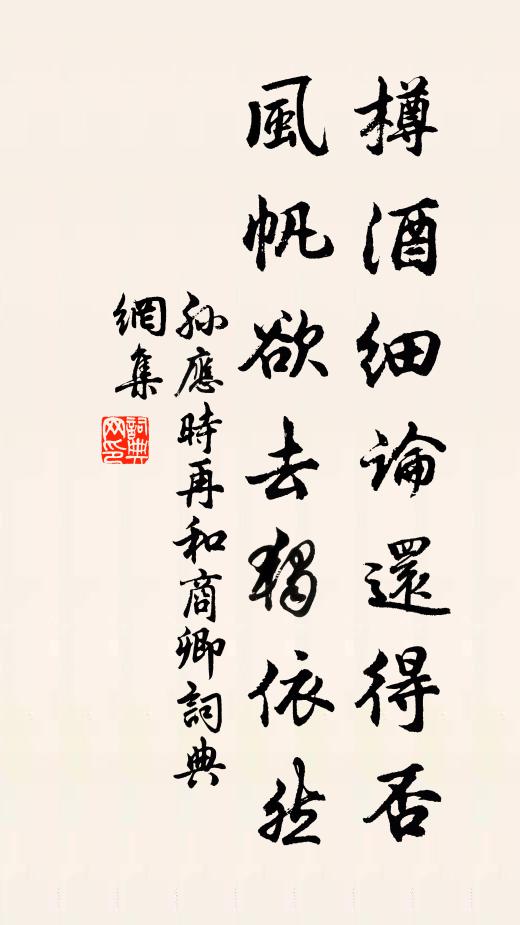 樽酒細論還得否
風帆欲去獨依然
孫應時再和商卿詞典
網集
詞典网印